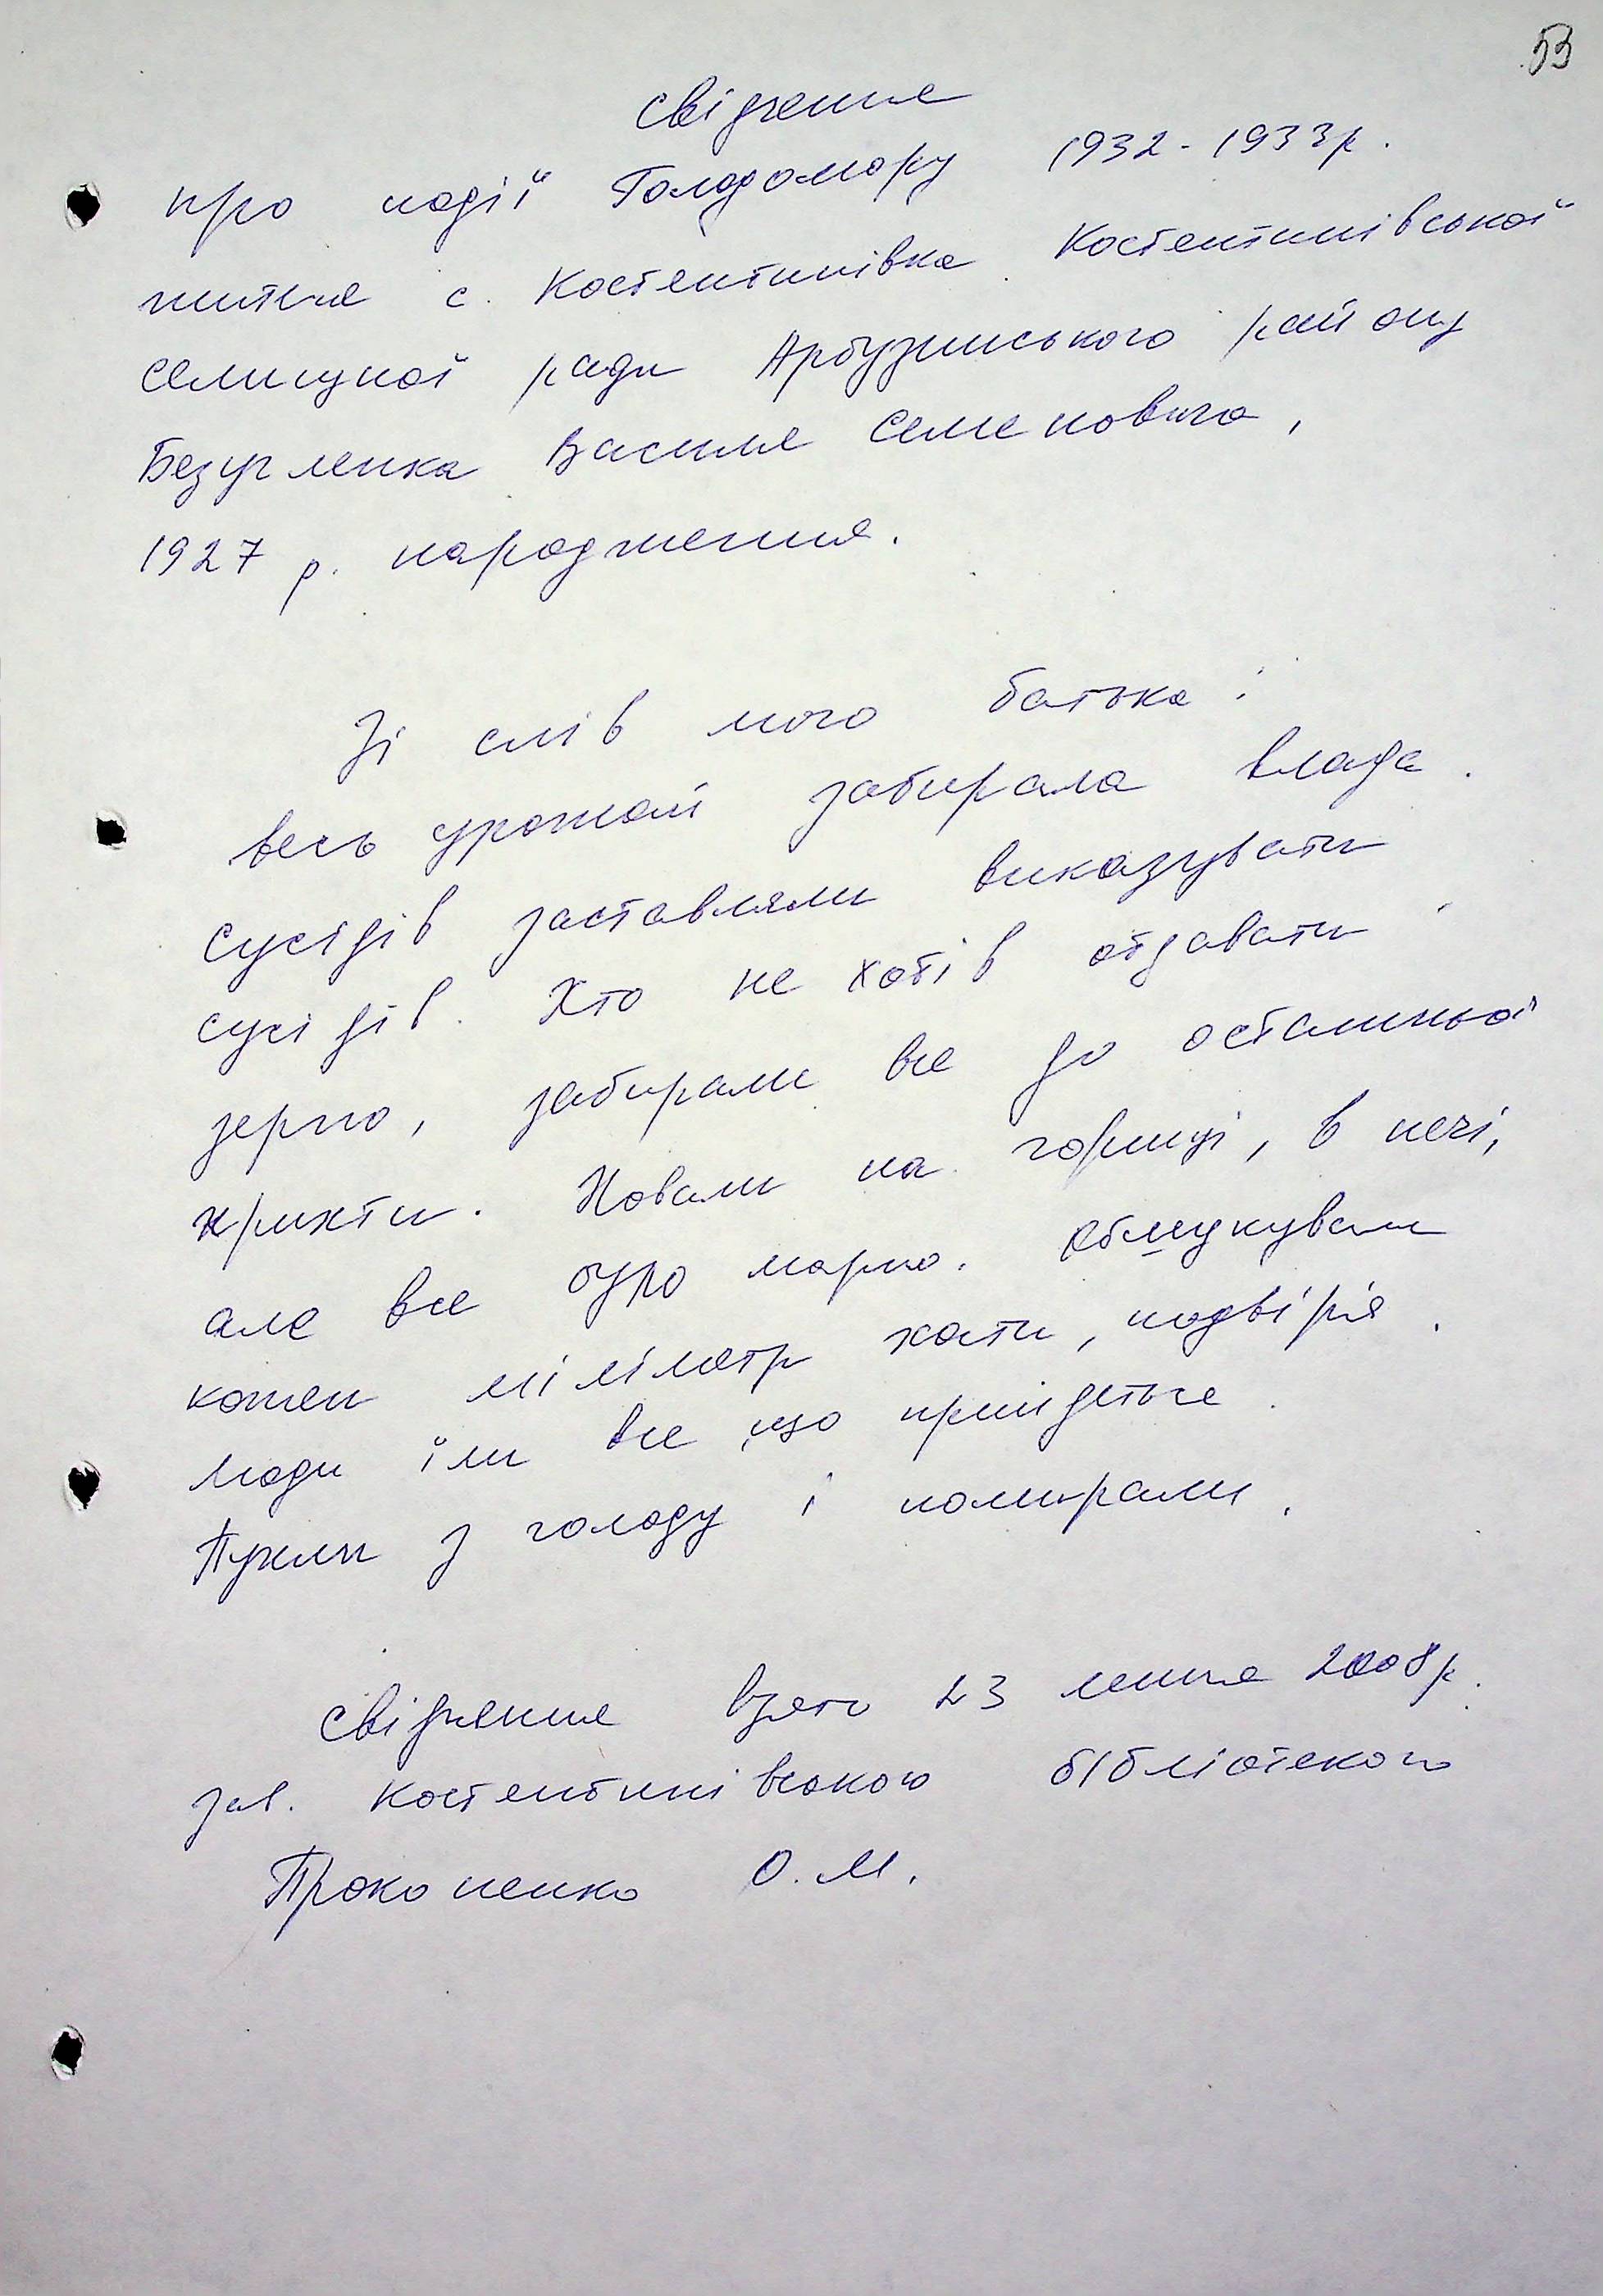 53
Свідчення
про події Голодомору 1932-1933р.
жителя с. Костянтинівка Костянтинівської
селищної ради Арбузинського району
Безугленка Василя Семеновича,
1927 р. народження.
Зі слів мого батька:
весь урожай забирала влада.
Сусідів заставляли виказувати
сусідів. Хто не хотів отдавати
зерно, забирали все до останньої
крихти. Ховали на горищі, в печі,
але все було марно. Обшукували
кожен міліметр хати, подвір'я.
Люди їли все, що прийдеться.
Пухли з голоду і помирали.
Свідчення взято 23 липня 2008р.
зав. Костянтинівською бібліотекою
Прокопенко О.М.